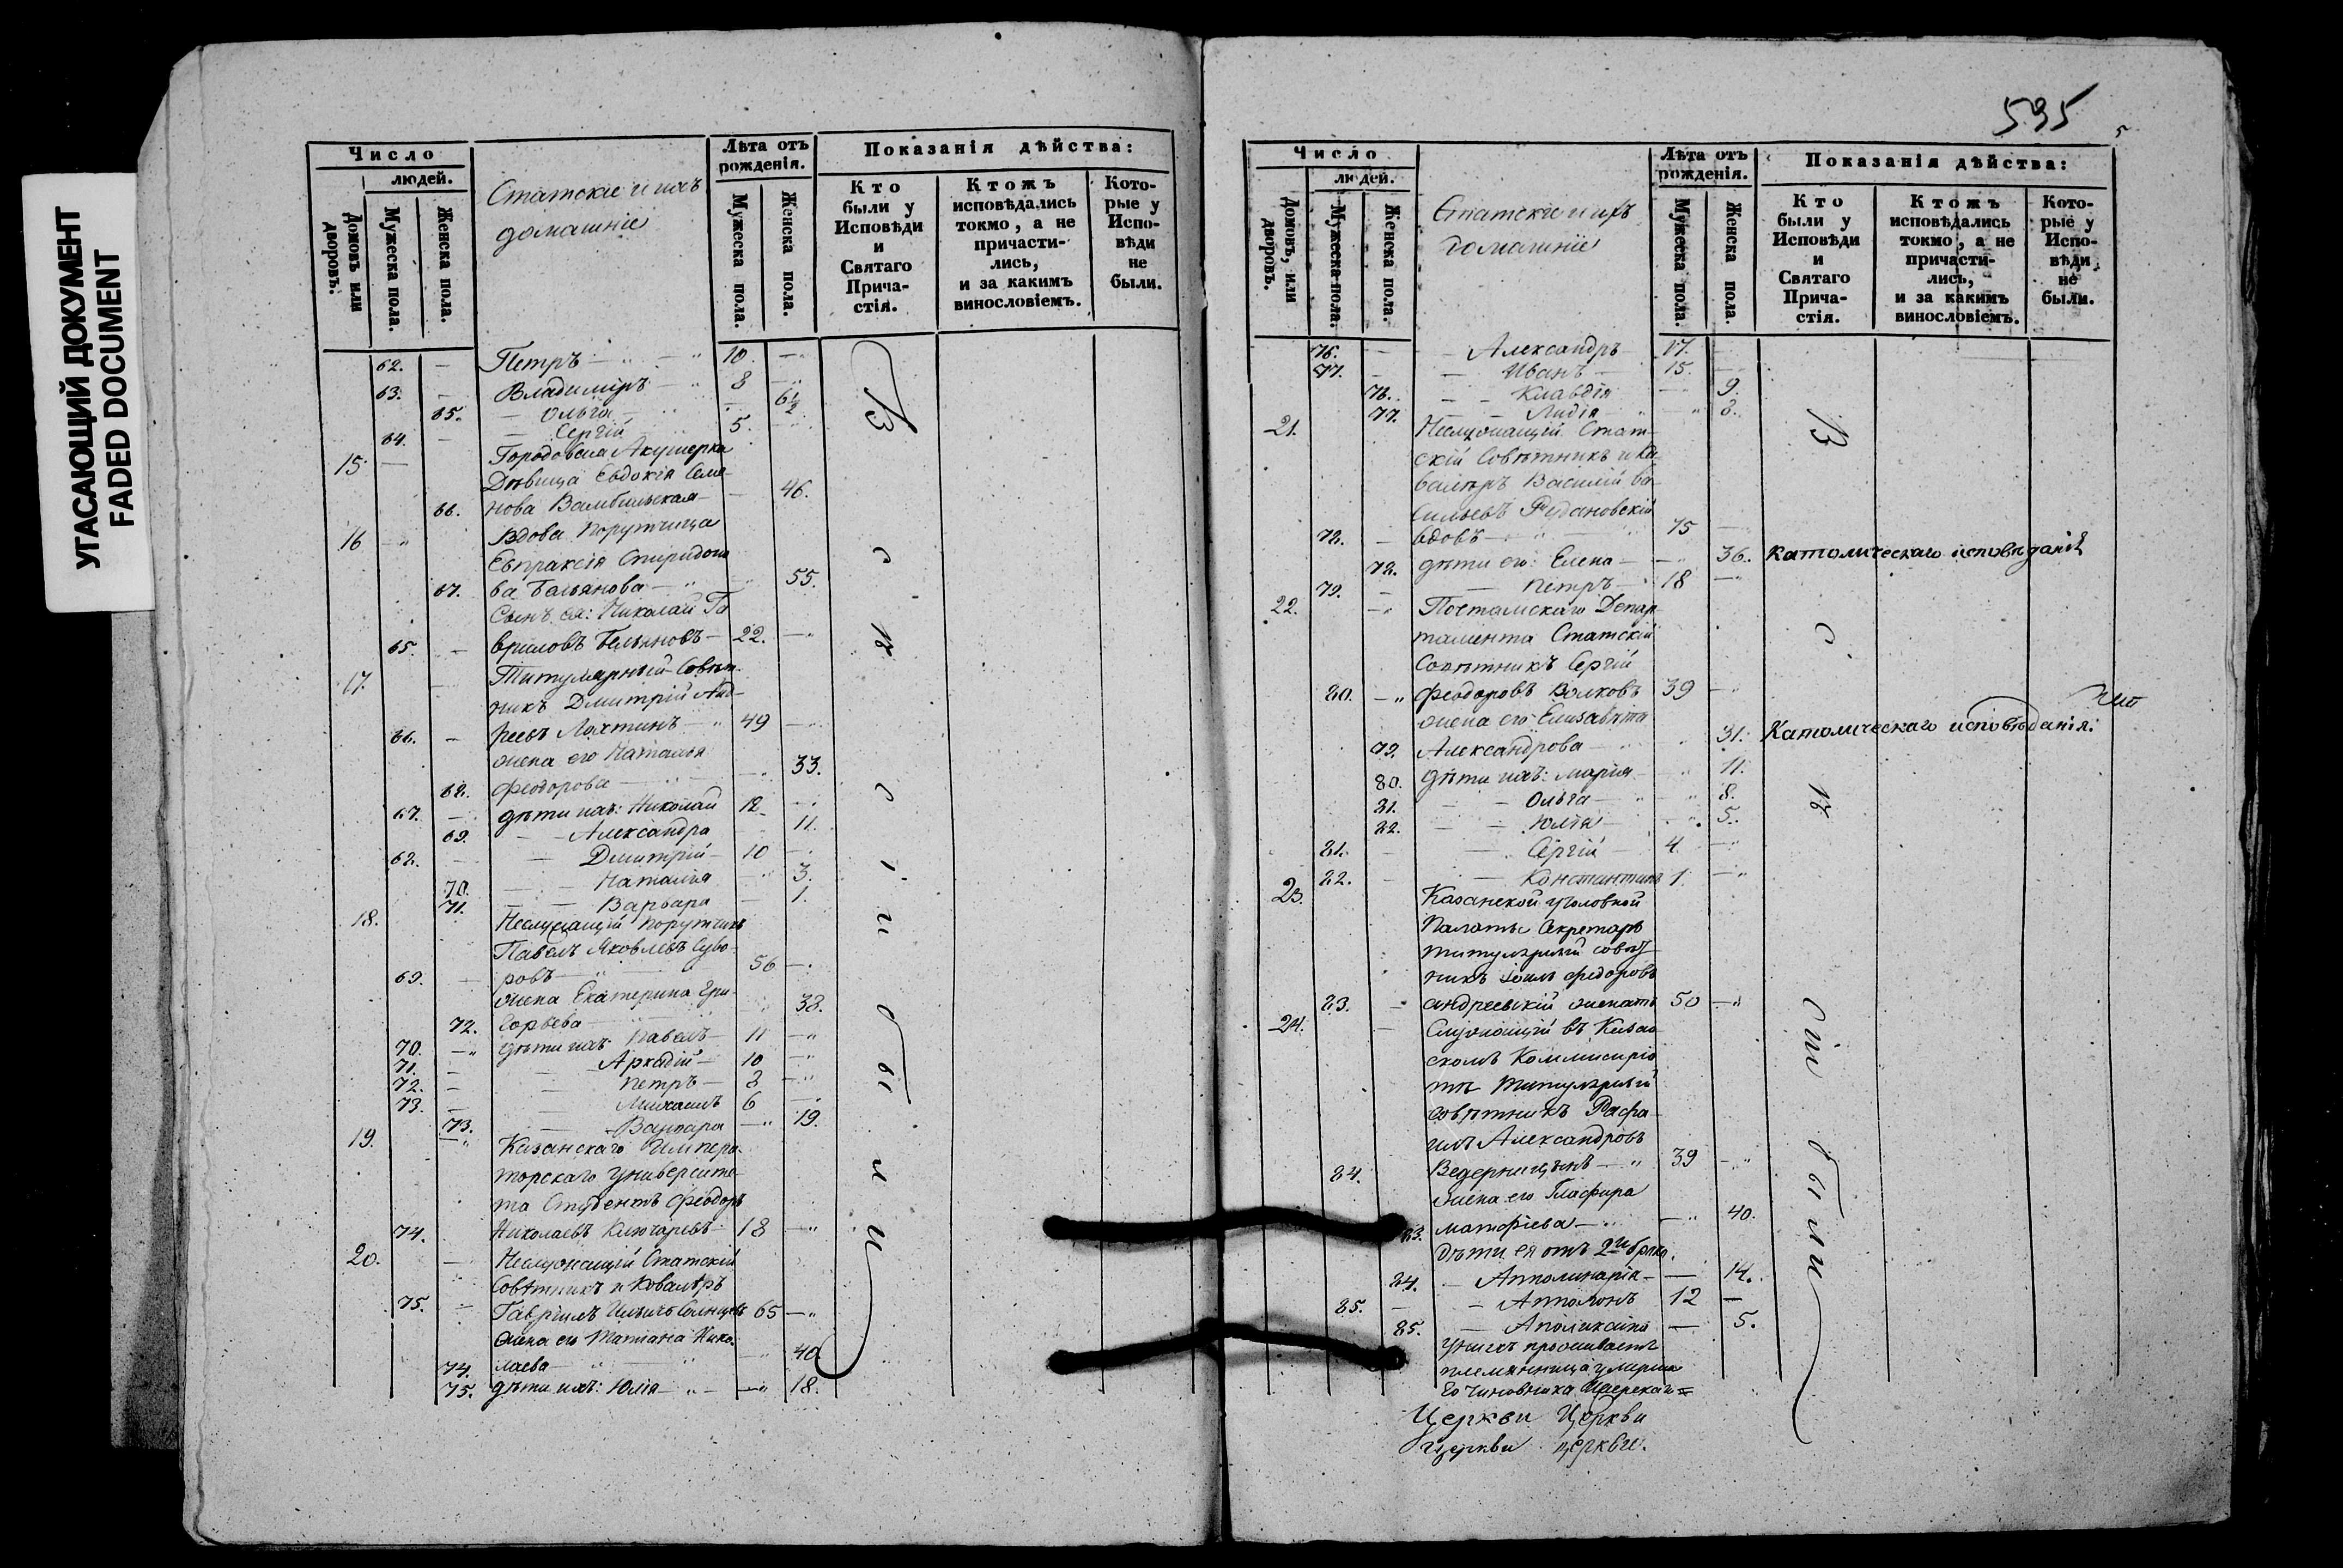 УГАСАЮЩИЙ ДОКУМЕНТ
FADED DOCUMENT
Число
людей.
Домовъ или дворовъ.
Мужеска пола.
Женска пола.
Статскіе и ихъ
домашніе
Лѣта отъ рожденія.
Мужеска пола.
Женска пола.
Показанія дѣйства:
Кто были у Исповѣди и Святаго Причастія.
Ктожъ исповѣдались токмо, а не причастились, и за какимъ винословіемъ.
Которые у Исповѣди не были.
62. — Петръ — 10. —
63. — Владиміръ — 8 —
65. — Ольга — 6½
64. — Сергій 5.
15. — Городовая Акушерка
Дѣвица Евдокія Семе-
66. нова — 46.
16 Вдова Порутчица
Евпраксія Спиридоно
67. ва Бальянова — 55.
Сынъ ея: Николай Га
65. — вриловъ Бельяновъ — 22. —
17. Титулярный Совѣт-
никъ Дмитрій Анд-
66. — реевъ Лохтинъ — 49 —
жена его Наталья
68. Феодорова — 33.
67. — дѣти ихъ: Николай 12 —
69. — Александра 11.
68. — Дмитрій — 10 —
70. — Наталія — 3.
71. — Варвара — 1.
18. Неслужащій Порутчикъ
Павелъ Яковлевъ Суво-
69. — ровъ — 56 —
жена Екатерина Гри-
72. горьева — 38.
70. — дѣти ихъ: Павелъ — 11 —
71. — Аркадій — 10 —
72. — Петръ — 8 —
73. — Михаилъ 6 —
73. — Варвара — 19.
19. Казанскаго Импера-
торскаго Университе-
та Студентъ Феодоръ
74. Николаевъ Ключаревъ 18 —
20. — Неслужащій Статскій
Совѣтникъ и Ковалѣръ
75. — Гавріилъ Ильичъ Солнцевъ 65 —
жена его Татіана Нико-
74. лаева — 40
75. дѣти ихъ: Юлія — 18.
Всѣ сіи были
595
5
Число
людей.
Домовъ, или дворовъ.
Мужеска пола.
Женска пола.
Статскіе и ихъ
домашніе
Лѣта отъ рожденія.
Мужеска пола.
Женска пола.
Показанія дѣйства:
Кто были у Исповѣди и Святаго Причастія.
Ктожъ исповѣдались токмо, а не причастились, и за какимъ винословіемъ.
Которые у Исповѣди не были.
76. — Александръ 17. —
77. — Иванъ — 15. —
76. — Клавдія — 9.
77. — Лидія — 8.
21. Неслужащій Стат-
скій Совѣтникъ и Ка-
валѣръ Василій Ва-
сильевъ
78. — вдовъ — 75 —
78. дѣти его: Елена — 36. Католическаго исповѣданія
79. — Петръ — 18 —
22. Почтамскаго Депар
тамента Статскій
Совѣтникъ Сергій
80. — Феодоровъ Волковъ 39 —
жена его Елизавѣта
79. Александрова 31. Католическаго исповѣданія:
80. дѣти ихъ: Марія 11.
81. — Ольга — 8.
82. — Юлія 5.
81. — Сергій — 4 —
82. — Константинъ 1. —
23. Казанской уголовной
Палаты Секретарь
титулярный совѣт
никъ Іоилъ Федоровъ
83. — Андреевскій женатъ 50 —
24. — Служащій въ Казан
скомъ Коммисиріа
тѣ титулярный
совѣтникъ Рафа-
илъ Александровъ
84. — 39 —
Жена его Глафира
83. Матфіева — 40.
Дѣти ея отъ 2го брака.
84. — Апполинарія — 14.
85. — Апполонъ 12 —
85. — 5.
У нихъ проживаетъ
племянница умерша
го чиновника
Церкви Церкви
Церкви церкви.
Всѣ сіи были